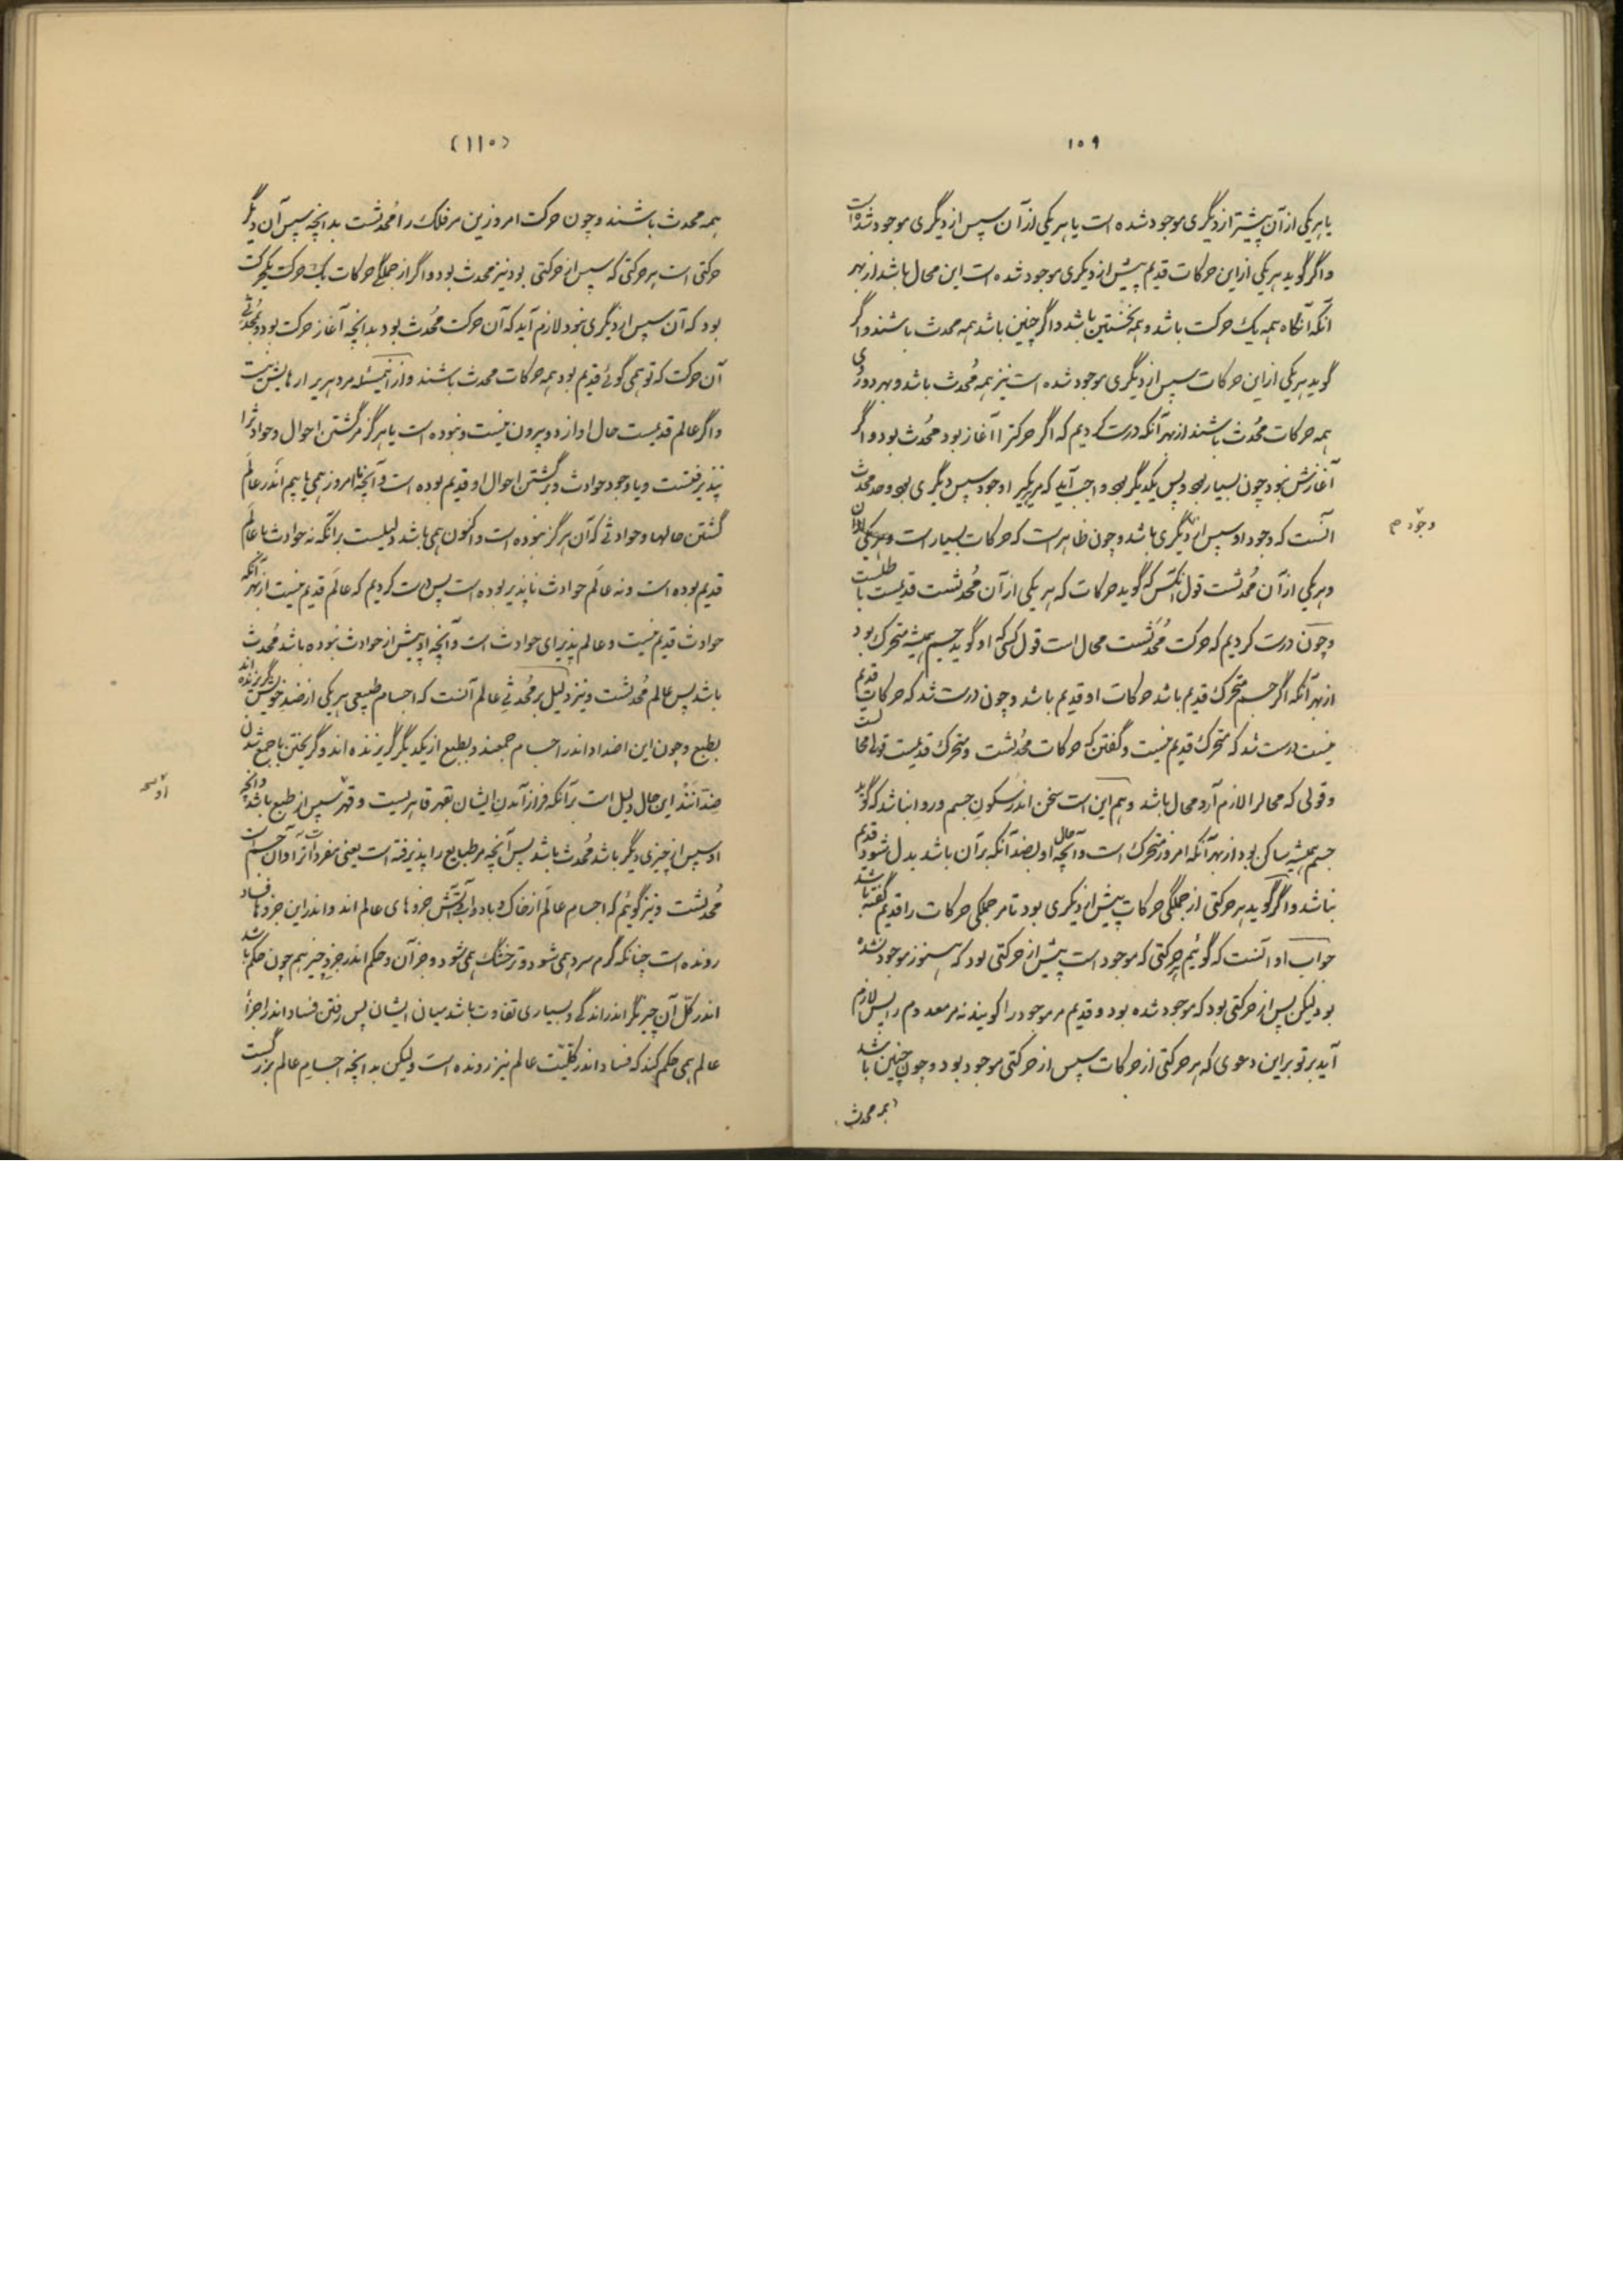 ۱۰۹
یا هر یکی از آن پیشتر از دیگری موجود شده است یا هر یکی از آن سپس از دیگری موجود شده است
و اگر گوید هر یکی از این حرکات قدیم پیش از دیگری موجود شده است این محال باشد از بهر
آنکه آنگاه همه یک حرکت باشد و همه نخستین باشد و اگر چنین باشد همه محدث باشند و اگر
گوید هر یکی از این حرکات سپس از دیگری موجود شده است نیز همه مُحدث باشد و بهر دو روی
همه حرکات مُحدث باشند از بهر آنکه درست کردیم که اگر حرکترا آغاز بود محُدث بود و اگر
آغازش نبود چون بسیار بود و پس یکدیگر بود واجب آید که هر یکیرا وجود سپس دیگری بود و حد محدث
آنست که وجود او سپس از دیگری باشد و چون ظاهر است که حرکات بسیار است
و هر یکی از آن مُحدثست قول آنکس که گوید حرکات که هر یکی از آن مُحدثست قدیمست باطلست
و چون درست کردیم که حرکت مُحدَثست محال است قول کسی که او گوید جسم همیشه متحرک بود
از بهر آنکه اگر جسم متحرک قدیم باشد حرکات او قدیم باشد و چون درست شد که حرکات قدیم
نیست درست شد که متحرک قدیم نیست و گفتن که حرکات محُدثست و متحرک قدیمست قولی محالست
و قولی که محالرا لازم آرد محال باشد و هم این است سخن اندر سکونِ جسم و روا نباشد که گوید
جسم همیشه ساکن بود از بهر آنکه امروز متحرک است و آنچه حال او بضد آنکه بر آن باشد بدل شود قدیم
نباشد و اگر گوید هر حرکتی از جملگی حرکات پیش از دیگری بود تا مر جملگی حرکات را قدیم گفته باشد
جواب او آنست که گوئیم هر حرکتی که موجود است پیش از حرکتی بود که هنوز موجود نشده
بود لیکن پس از حرکتی بود که موجود شده بود و قدیم مر موجود را گویند نه مر معدوم را پس لازم
آید بر تو براین دعوی که هر حرکتی از حرکات سپس از حرکتی موجود بود و چون چنین باشد
همه محدث
وجود م
(۱۱۰)
همه محدث باشند و چون حرکت امروزین مر فلک را مُحدثست بدانچه سپس آن دیگر
حرکتی است هر حرکتی که سپس از حرکتی بود نیز محدث بود و اگر از جملگی حرکات یک حرکت
بود که آن سپس از دیگری نبود لازم آید که آن حرکت مُحدث بود بدانچه آغاز حرکت بود و بمُحدثی
آن حرکت که تو همی گوئی قدیم بود همه حرکات محدث باشند و از این مسئله مر دهریرا رهایش نیست
و اگر عالم قدیمست حال او از دو بیرون نیست و نبوده است یا هرگز مر گشتن احوال و حوادث را
نپذیرفتست و یا وجود حوادث و گشتن احوال او قدیم بوده است و آنچه ما امروز همی یابیم اندر عالَم
گشتن حالها و حوادثی که آن هرگز نبوده است و اکنون همی باشد دلیلست بر آنکه نه حوادث با عالَم
قدیم بوده است و نه عالَم حوادث ناپذیر بوده است پس درست کردیم که عالَم قدیم نیست از بهر آنکه
حوادث قدیم نیست و عالم پذیرای حوادث است و آنچه او پیش از حوادث نبوده باشد مُحدث
باشد پس عالم مُحدثست و نیز دلیل بر مُحدثی عالم آنست که اجسام طبیعی هر یکی از ضدِ خویش گریزنده اند
بطبع و چون این اضداد اندر اجسام جمعند و بطبع از یکدیگر گریزنده اند و گریختن با جمع شدن
ضدانند این حال دلیل است بر آنکه فراز آمدن ایشان بقهر قاهریست و قهر سپس از طبع باشد و آنچه
او سپس از چیزی دیگر باشد مُحدث باشد پس آنچه مر طبایع را پذیرفته است یعنی مفردات را و آن جسم است
مُحدثست و نیز گوئیم که اجسامِ عالَم از خاک و باد و آب و آتش جزوهای عالم اند و اندر این جزوها فساد
رونده است چنانکه گرم سرد همی شود و تر خشک همی شود و جز آن و حکم اندر جزوِ چیز هم چون حکم باشد
اندر کلّ آن چیز مگر اندر اندکی و بسیاری تفاوت باشد میان ایشان پس رفتن فساد اندر اجزأ
عالم همی حکم کند که فساد اندر کلیّت عالم نیز رونده است ولیکن بدانچه اجسامِ عالم بزرگست